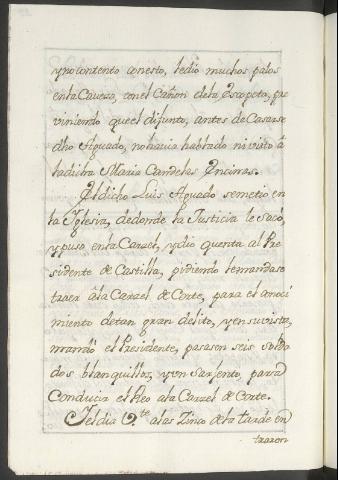 ypocontento conesto, ledio muchos palos
enla Caveza, conel Cañon dela Escopeta, pre
viniendo queel difunto, antes de Casarse
dho Aguado, nohavia hablado nivisto â
ladicha Maria Candelas Encinas.
El dicho Luis Aguado semetio en
la Iglesia, dedonde la Justicia le Sacó,
ypuso enla Carzel, ydio quenta al Pre
sidente de Castilla, pidiendo lemandase
traer âla Carzel de Corte, para el conoci
miento detan gran delito, yensuvista,
mandó el Presidente, pasasen seis Solda
dos blanquillos, yun Sarjento, para
Conducir el Reo ala Carzel de Corte.
El dia alas Zinco dela tarde en
traron